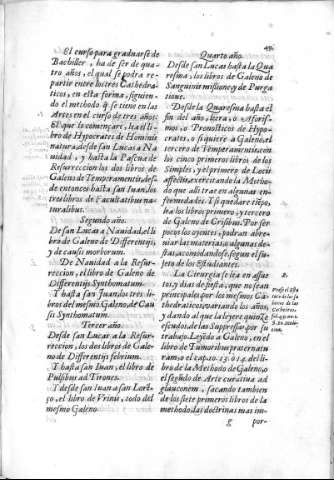 49.
El curso para graduarse de
Bachiller, ha de ser de qua-
tro años, el qual se podra re-
partir entre los tres Cathedra-
ticos, en esta forma, siguien-
do el methodo q̃ se tiene en las
Artes en el curso de tres años:
El que lo començare, lea el li-
bro de Hypocrates de Hominis
natura, desde san Lucas a Na
uidad, y hasta la Pascua de
Resurreccion los dos libros de
Galeno de Temperamentis, des-
de entonces hasta san Iuan, los
tres libros de Facultatibus na-
turalibus.
Segundo año.
De san Lucas a Nauidad, el li
bro de Galeno de Differentijs,
y de causis morborum.
De Nauidad a la Resur-
reccion, el libro de Galeno de
Differentijs Synthomatum.
Y hasta san Iuan los tres li-
bros del mesmo Galeno, de Cau
sis Synthomatum.
Tercer año.
Desde san Lucas a la Resur-
reccion, los dos libros de Gale-
no de Differentijs febrium.
Y hasta san Iuan, el libro de
Pulsibus ad Tirones.
Y desde san Iuan a san Loren-
ço, el libro de Vrinis, todo del
mesmo Galeno.
Quarto año.
Desde san Lucas hasta la Qua
resma, los libros de Galeno de
Sanguinis missione, y de Purga
tione.
Desde la Quaresma hasta el
fin del año, leera, o Aforis-
mos, o Pronosticos de Hypo-
crates, o si quiere a Galeno, el
tercero de Temperamentis, con
los cinco primeros libros de los
Simples, y el primero de Locis
affectis, exercitando la Metho-
do que alli trae en algunas en-
fermedades. Y si quedare tiẽpo,
lea los libros primero, y tercero
de Galeno de Crisibus. Por ser
pocos los oyentes, podran abre-
uiar las materias, o algunas de-
stas, acomodandose, segun el su-
jeto de los Estudiantes.
La Cirurgia se lea en assue-
tos, y dias de fiesta, que no sean
principales, por los mesmos Ca-
thedraticos, variando los años,
y dando al que la leyere quinze
escudos, de las Suppressas, por su
trabajo. Leyẽdo a Galeno, en el
libro de Tumoribus præter natu-
ram, o el cap. 10. 13. o 14. del li-
bro de la Methodo de Galeno, o
el segũdo de Arte curatiua ad
glauconem, sacando tambien
de los siete primeros libros de la
methodo, las doctrinas mas im-
2.
g por-